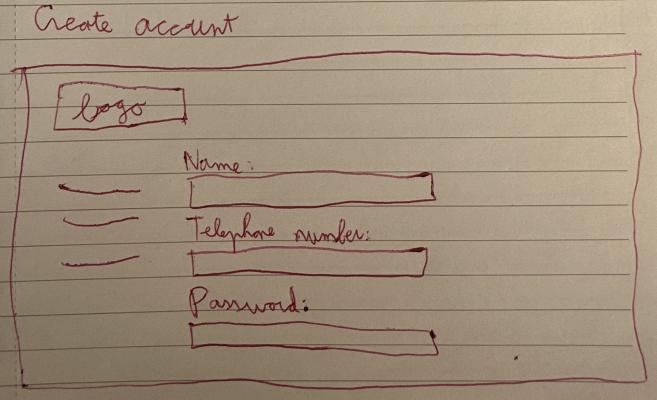 Create account
Logo
Name:
Telephone number:
Password: